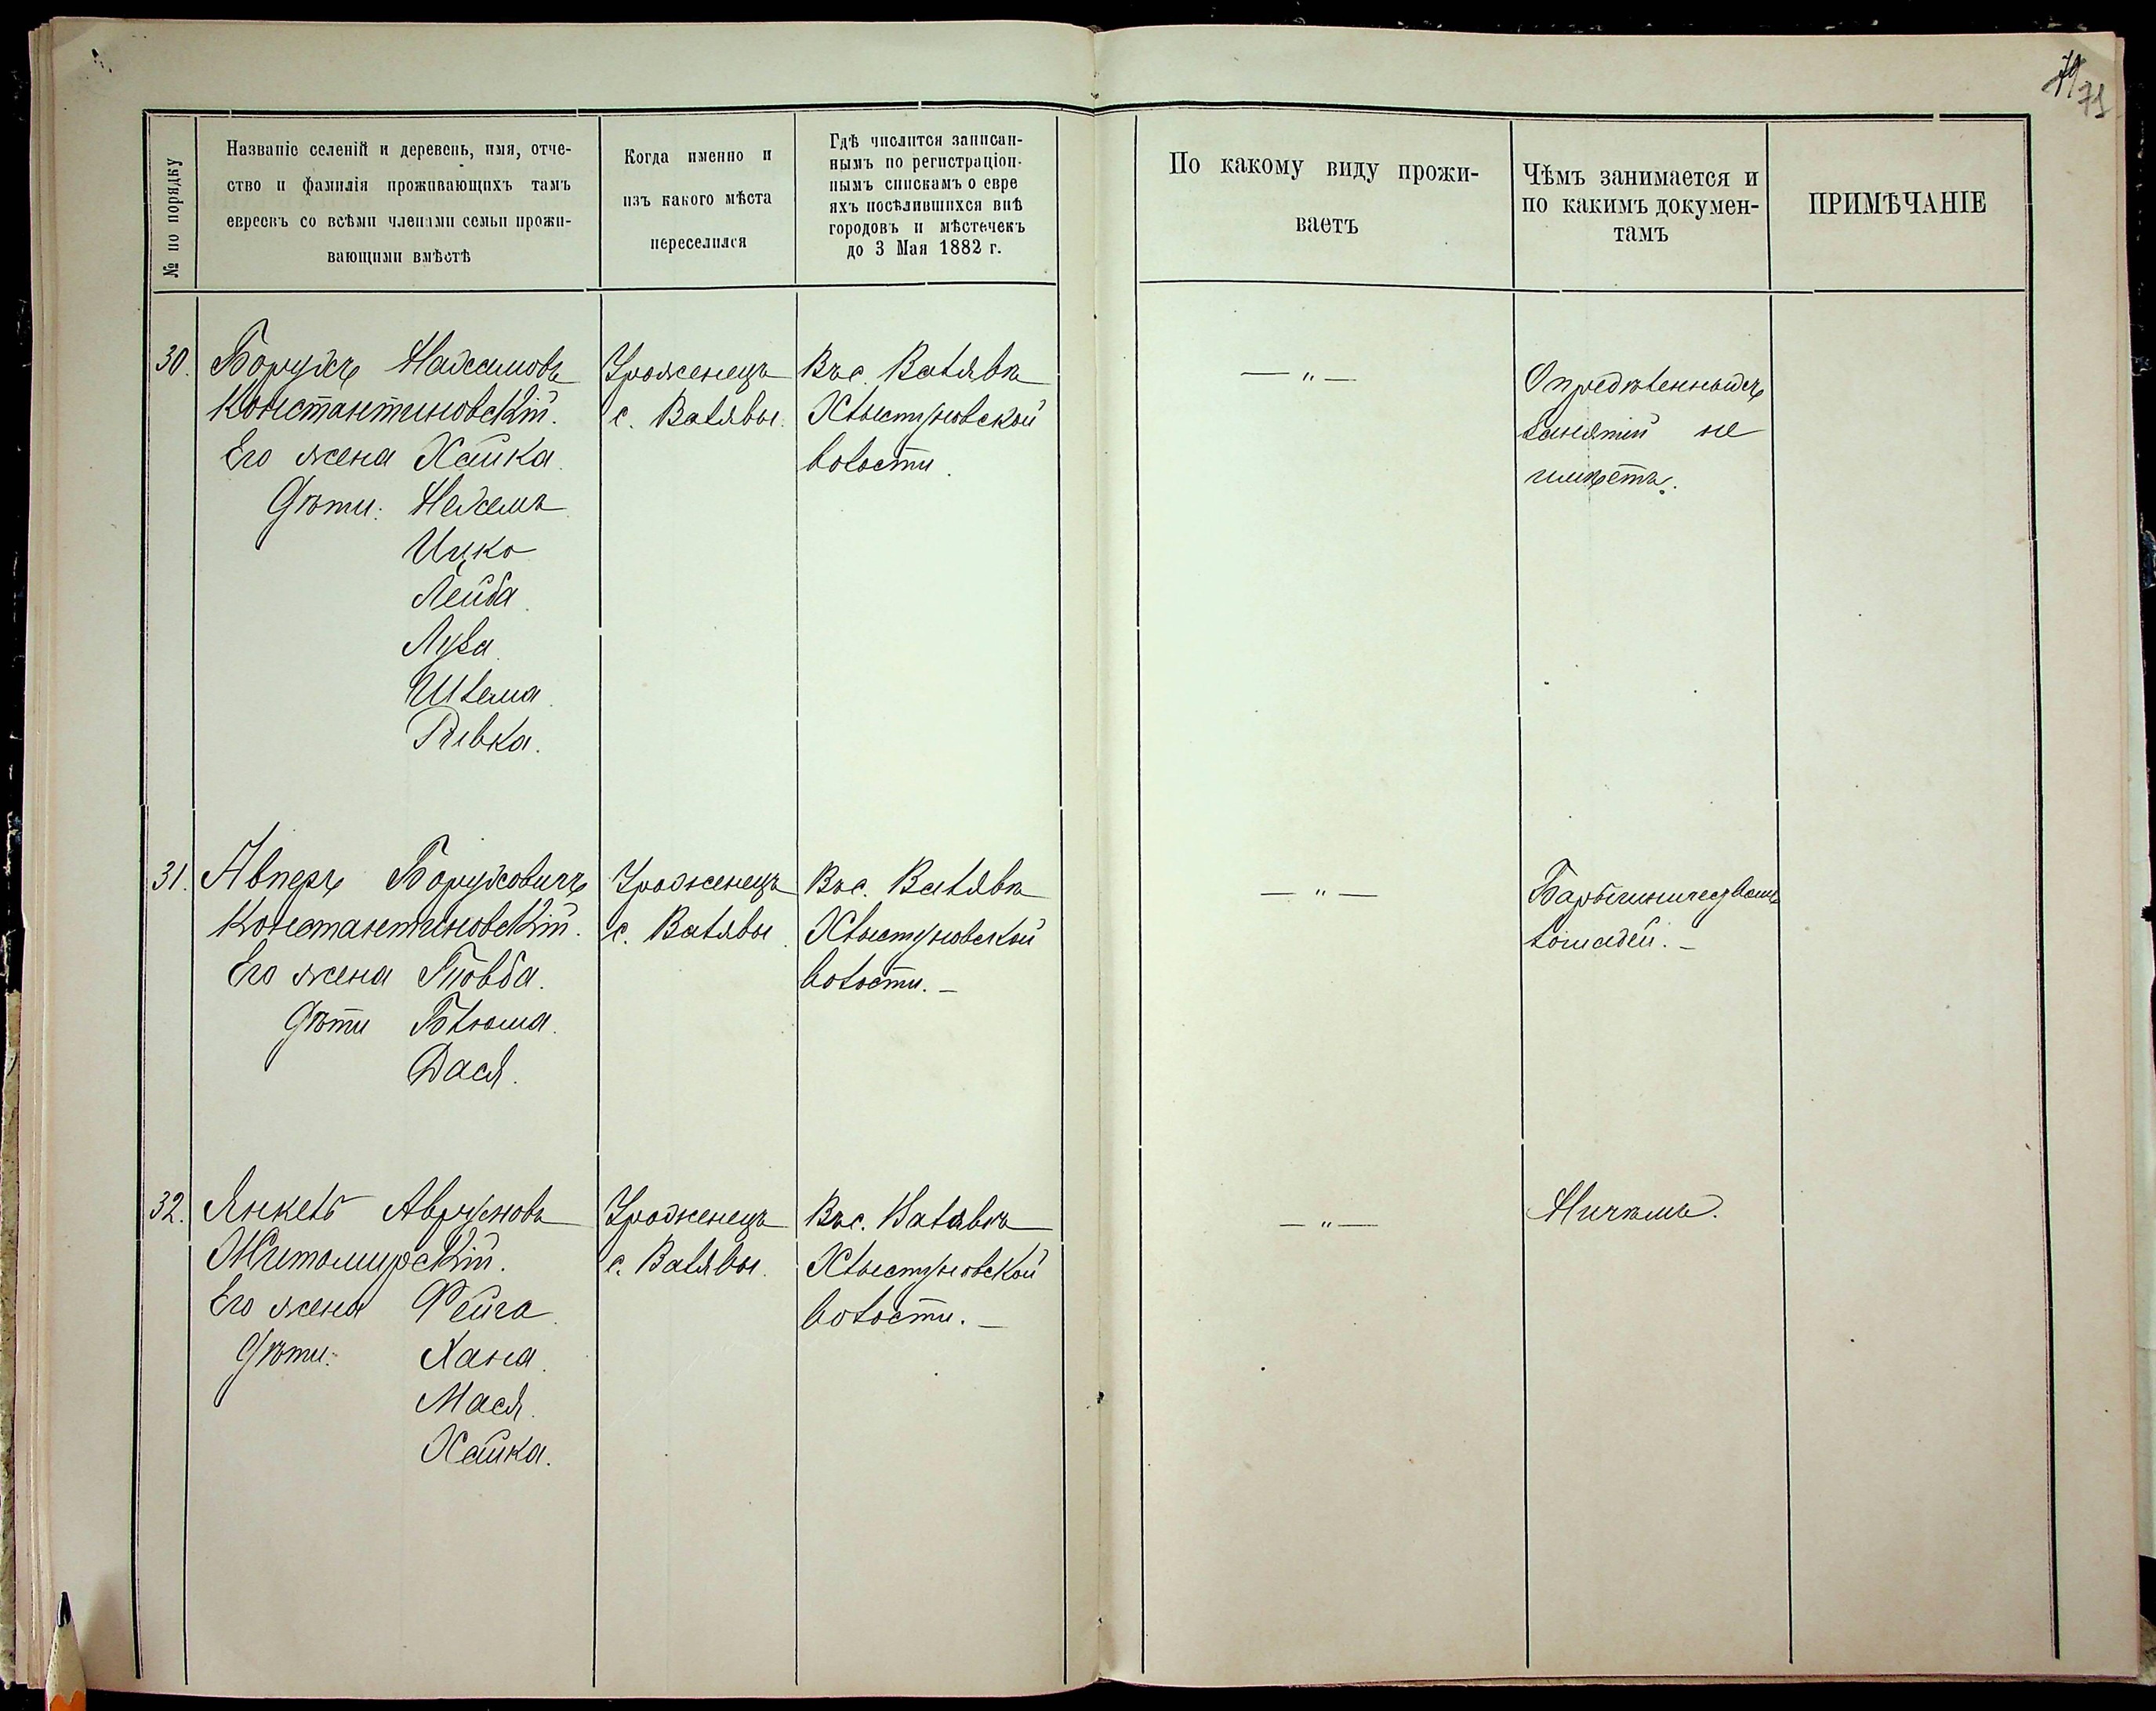 71
№ по порядку
Названіе селеній и деревень, имя, отче-
ство и фамилія проживающихъ тамъ
евреевъ со всѣми членами семьи прожи-
вающими вмѣстѣ
Когда именно и
изъ какого мѣста
переселился
Гдѣ числится записан-
нымъ по регистраціон-
нымъ спискамъ о евре
яхъ посѣлившихся внѣ
городовъ и мѣстечекъ
до 3 Мая 1882 г.
По какому виду прожи-
ваетъ
Чѣмъ занимается и
по какимъ докумен-
тамъ
ПРИМѢЧАНІЕ
30. Борухъ Нахимовъ
Константиновскій.
Его жена Хайка.
Дѣти: Нахимъ
Ицко
Лейба.
Луза.
Шлема.
Ривка.
Уроженецъ
с. Валявы.
Въ с. Валявѣ
Хлыстуновской
волости.
— „ —
Опредѣленныхъ
занятій не
имѣетъ.
31. Авперъ Боруховичъ
Константиновскій.
Его жена Товба.
Дѣти Блюма.
Дася.
Уроженецъ
с. Валявы.
Въ с. Валявѣ
Хлыстуновской
волости. —
— „ —
Барышничествомъ
лошадей. —
32. Янкель Аврумовъ
Житомирскій.
Его жена Фейга.
Дѣти: Хана.
Мася.
Хайка.
Уроженецъ
с. Валявы.
Въ с. Валявѣ
Хлыстуновской
волости. —
— „ —
Ничѣмъ.